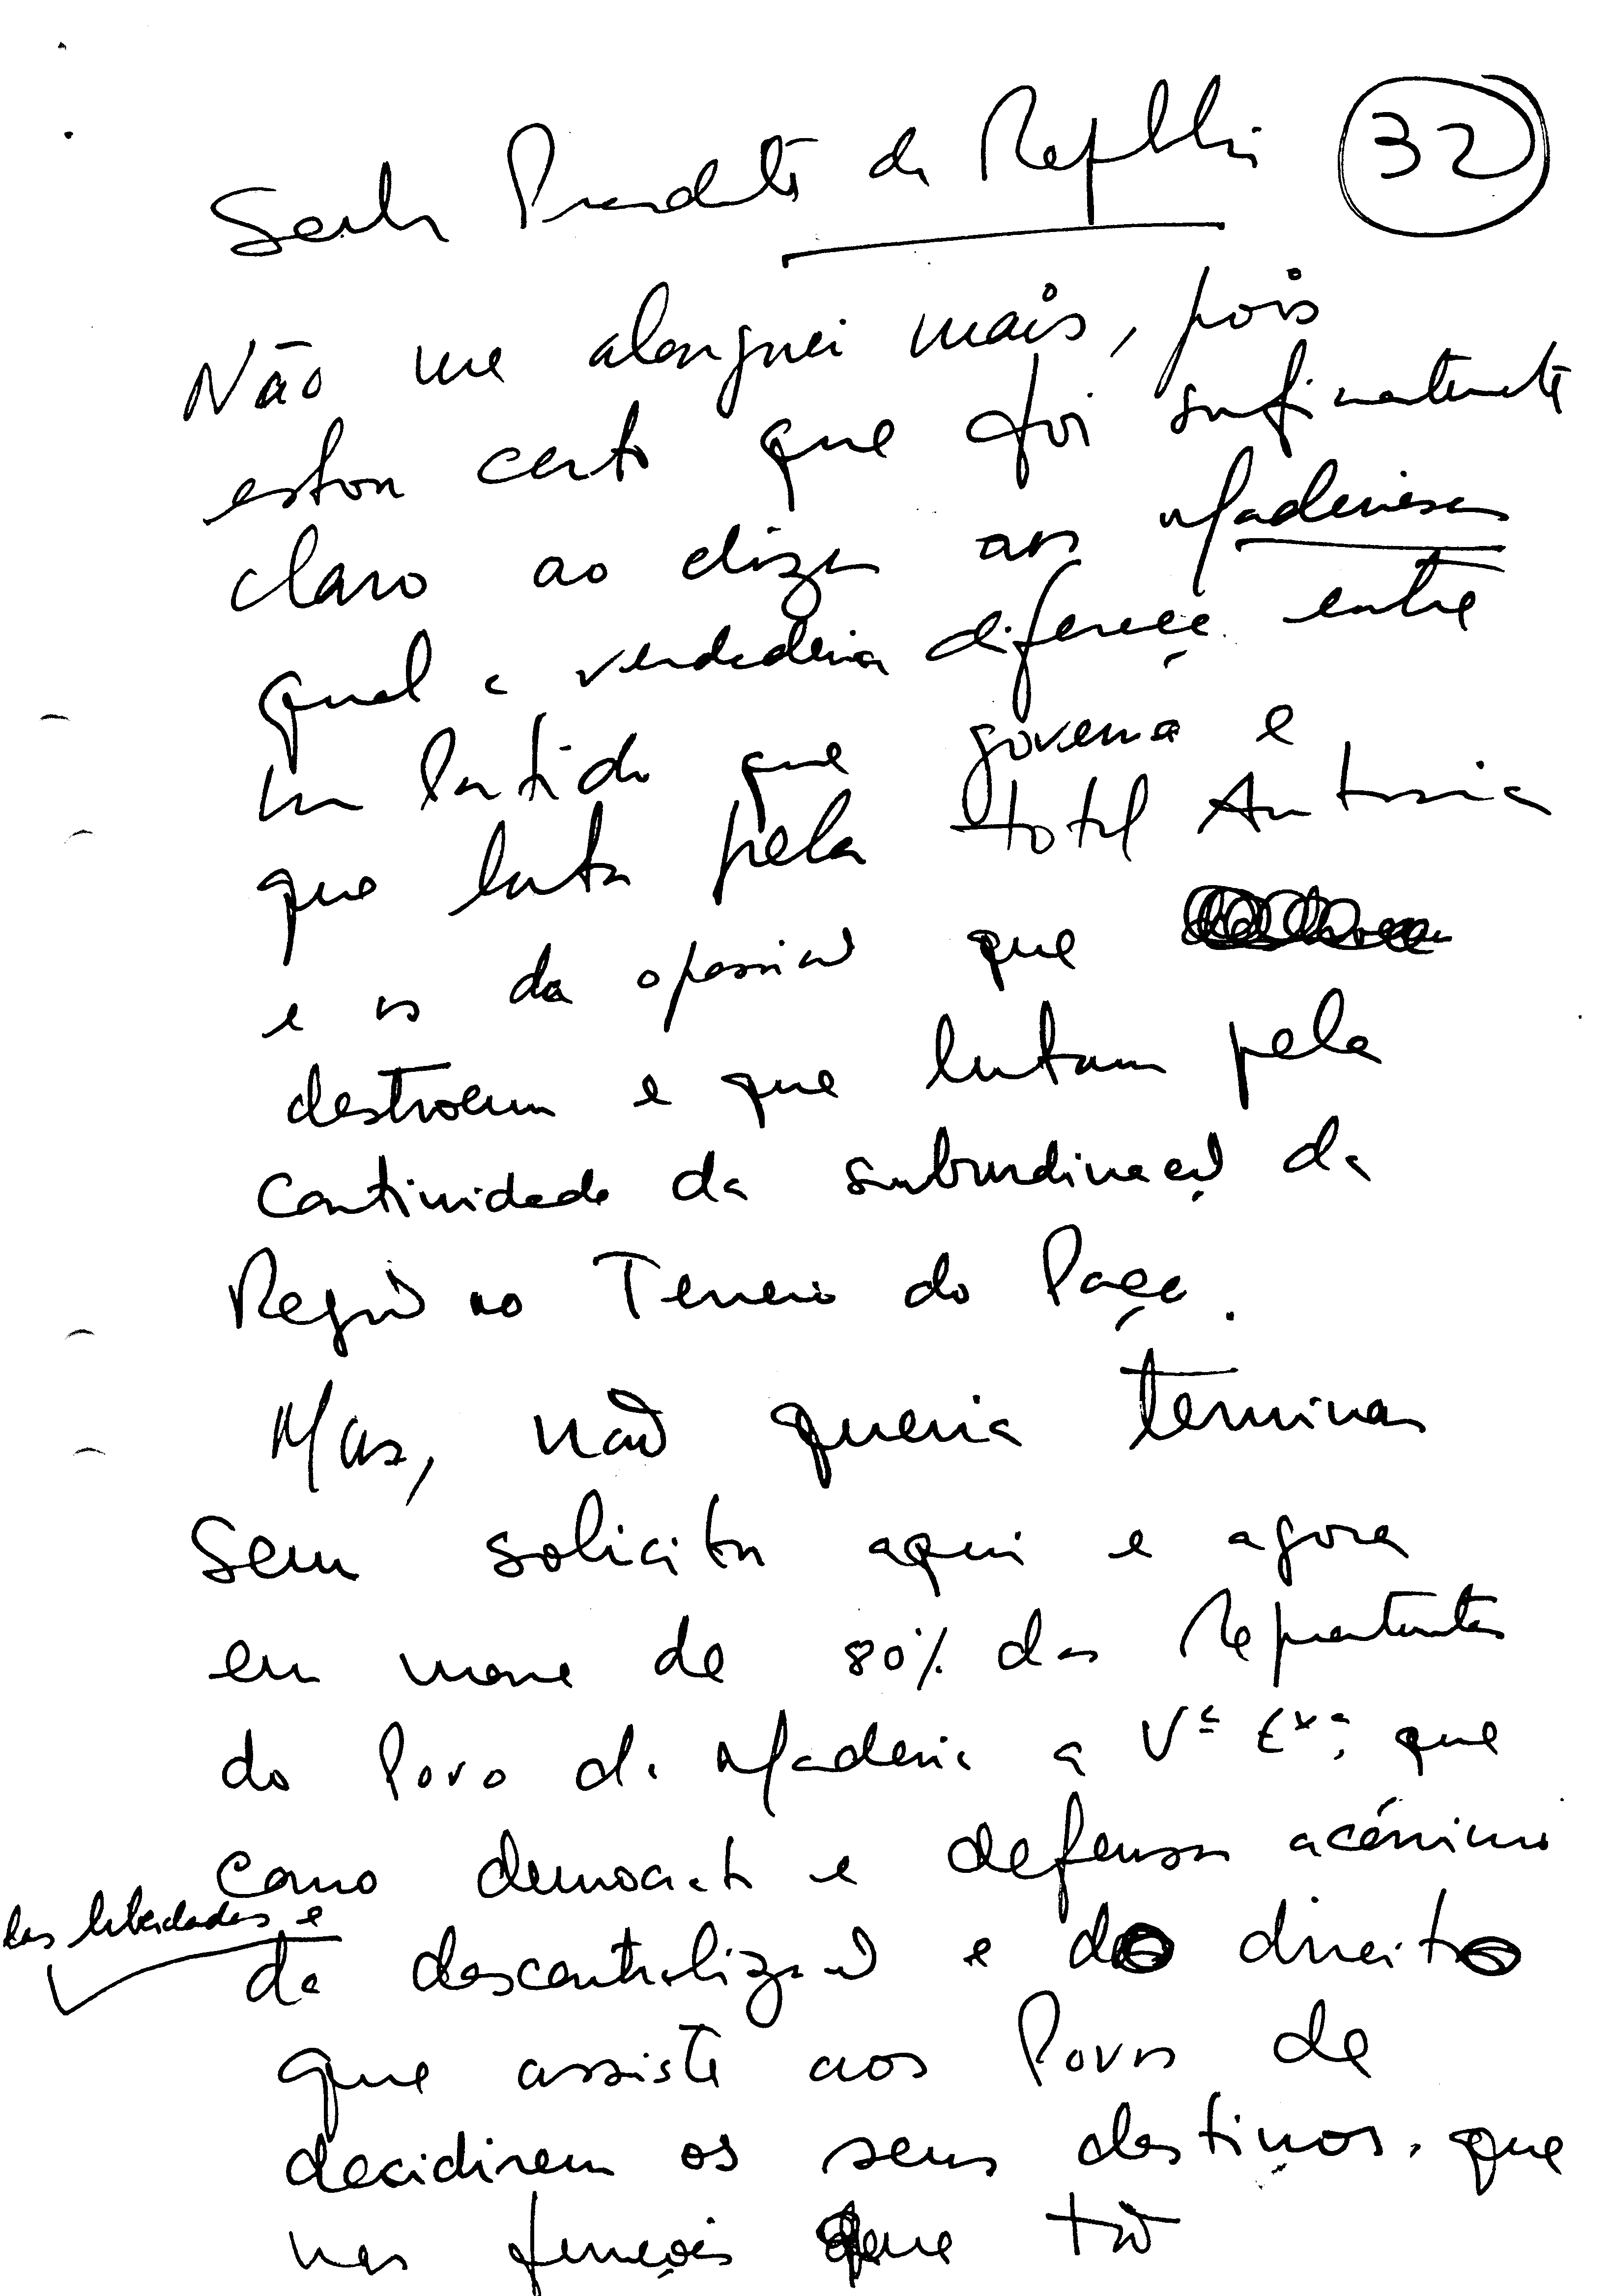 Senhor Presidente da República
32
Não me alonguei mais, pois
estou certo que foi suficientemente
claro ao dizer aos Madeirenses
qual a verdadeira diferença entre
um Partido que governa e
que luta pela total Autonomia
e os da oposição que
destroem e que lutam pela
continuidade da subordinação da
Região ao Terreiro do Paço.
Mas, não queria terminar
sem solicitar aqui e agora
em nome de 80% dos Representantes
do Povo da Madeira a Vª Exª, que
como democrata e defensor acérrimo
das liberdades e
da descentralização e do direito
que assiste aos Povos de
decidirem os seus destinos, que
nas funções que tão